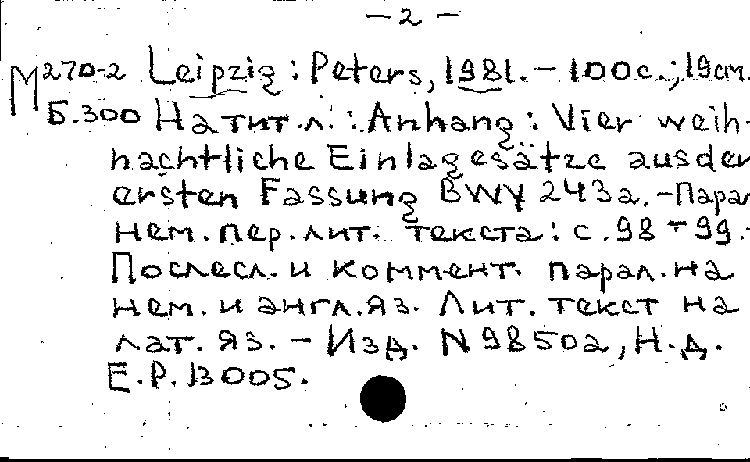 — 2 —
М 270-2 Leipzig : Peters, 1981. – 100 с. ; 19 см.
Б.300 На тит. л. : Anhang : Vier weih-
nachtliche Einlagesätze aus der
ersten Fassung BWV 243a. – Парал
нем. пер. лит. текста : с. 98–99. –
Послесл. и коммент. парал. на
нем. и англ. яз. Лит. текст на
лат. яз. – Изд. N 9850a, Н. д.
E.P. 13005.